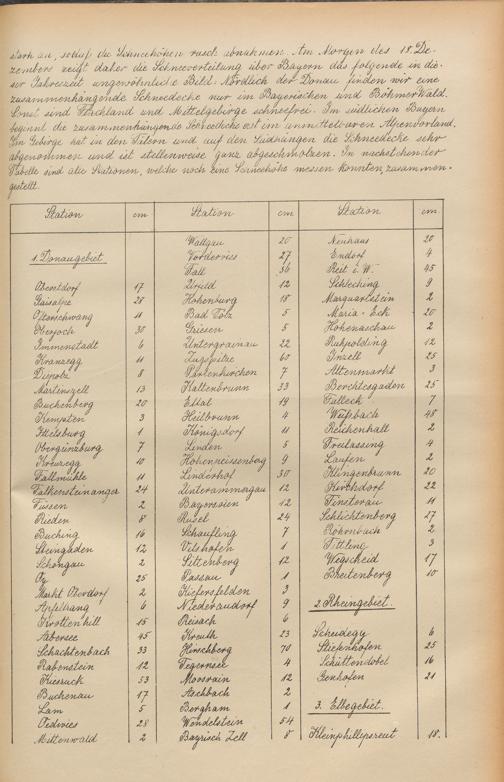 stark an, sodaß die Schneehöhen rasch abnahmen. Am Morgen des 18. De-
zembers zeigt daher die Schneeverteilung über Bayern das folgende in die-
ser Jahreszeit ungewöhnliche Bild. Nördlich der Donau finden wir eine
zusammenhängende Schneedecke nur im Bayerischen und Böhmerwald.
Sonst sind Flachland und Mittelgebirge schneefrei. Im südlichen Bayern
beginnt die zusammenhängende Schneedecke erst im unmittelbaren Alpenvorland.
Im Gebirge hat in den Tälern und auf den Südhängen die Schneedecke sehr
abgenommen und ist stellenweise ganz abgeschmolzen. In nachstehender
Tabelle sind alle Stationen, welche noch eine Schneehöhe messen konnten, zusammen-
gestellt.
Station cm
1. Donaugebiet.
Oberstdorf 17
Gaisalpe 28
Ofterschwang 11
Oberjoch 30
Immenstadt 6
Kranzegg 11
Diepolz 8
Martinszell 13
Buchenberg 20
Kempten 3
Ittelsburg 1
Obergünzburg 7
Kreuzegg 10
Fallmühle 11
Falkensteinanger 24
Füssen 2
Rieden 8
Buching 16
Steingaden 12
Schongau 2
Oy 25
Markt Oberdorf 2
Apfeltrang 6
Krottenhill 15
Arbersee 45
Schachtenbach 33
Rabenstein 12
Kiesruck 53
Buchenau 17
Lam 5
Oedwies 28
Mittenwald 2
Station cm
Wallgau 20
Vorderriss 27
Fall 36
Urfeld 12
Hohenburg 18
Bad Tölz 5
Griesen 5
Untergrainau 22
Zugspitze 60
Partenkirchen 7
Kaltenbrunn 33
Ettal 19
Heilbrunn 4
Königsdorf 11
Linden 5
Hohenpeissenberg 9
Linderhof 30
Unterammergau 12
Bayersoien 12
Rusel 24
Schaufling 7
Vilshofen 1
Sittenberg 12
Passau 1
Kiefersfelden 3
Niederaudorf 9
Reisach 6
Kreuth 23
Hirschberg 70
Tegernsee 4
Moosrain 12
Aschbach 2
Bergham 1
Wendelstein 54
Bayrisch Zell 8
Station cm.
Neuhaus 20
Endorf 4
Reit i. W. 45
Schleching 9
Marquartstein 2
Maria-Eck 20
Hohenaschau 2
Ruhpolding 12
Inzell 25
Altenmarkt 3
Berchtesgaden 25
Falleck 7
Weißbach 48
Reichenhall 2
Freilassing 4
Laufen 2
Klingenbrunn 20
Kirchdorf 22
Finsterau 11
Schlichtenberg 27
Rohrnbach 2
Tittling 3
Wegscheid 17
Breitenberg 10
2. Rheingebiet.
Scheidegg 6
Stiefenhofen 25
Schüttendobel 16
Genhofen 21
3. Elbegebiet.
Kleinphilippsreut 18.